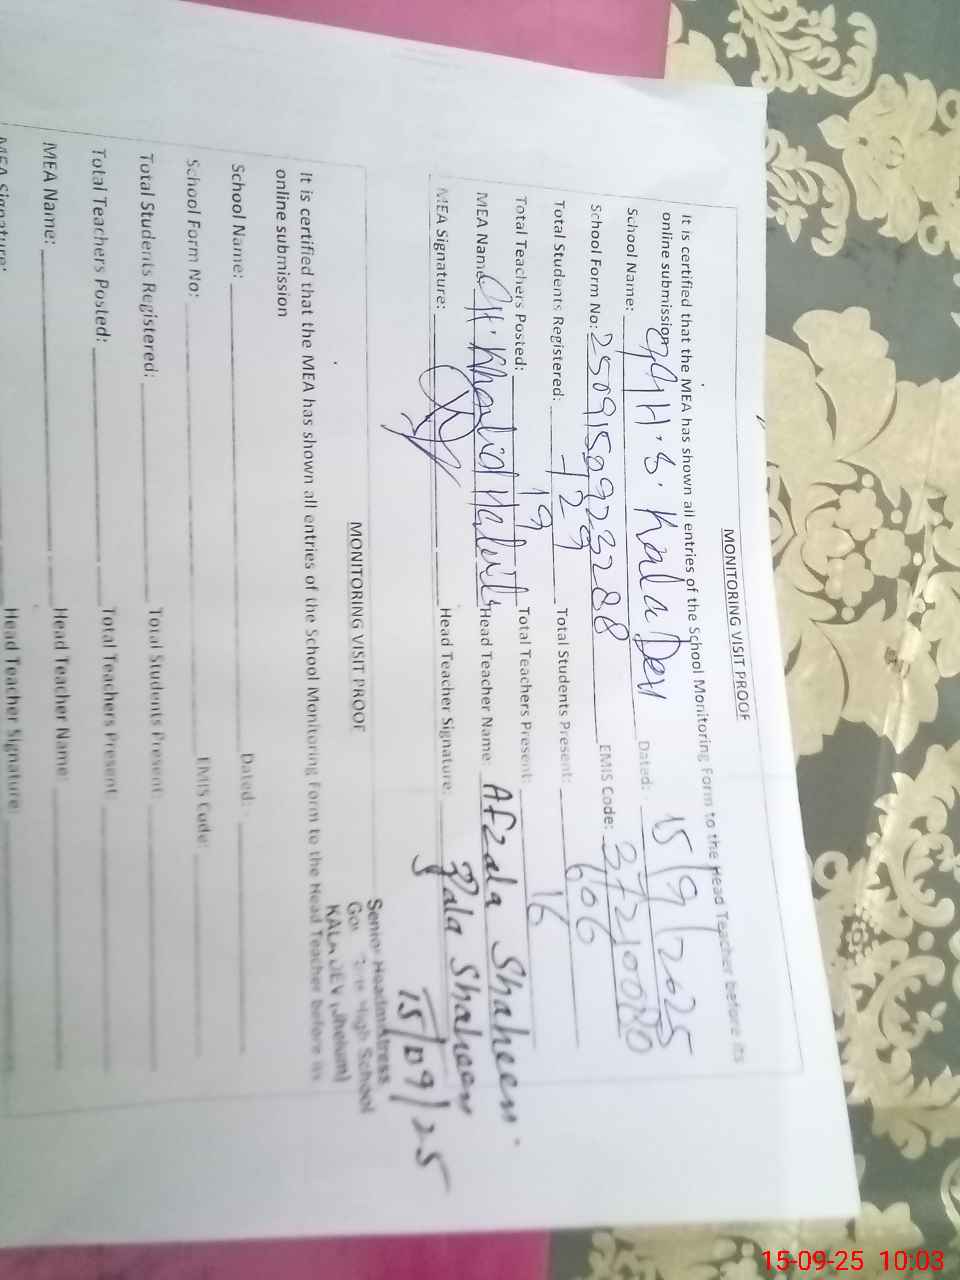 MONITORING VISIT PROOF
It is certified that the MEA has shown all entries of the School Monitoring Form to the Head Teacher before its
online submission
School Name: GGH.S. Kala Dev Dated: 15/9/2025
School Form No: 25091509923288 EMIS Code: 37210080
Total Students Registered: 729 Total Students Present: 606
Total Teachers Posted: 19 Total Teachers Present: 16
MEA Name: CH. Khalid Head Teacher Name: Afzala Shaheen.
MEA Signature: Head Teacher Signature: Shaheen
15/09/25
Senior Headmistress
High School
KALA DEV (Jhelum)
MONITORING VISIT PROOF
It is certified that the MEA has shown all entries of the School Monitoring Form to the Head Teacher before its
online submission
School Name: Dated:
School Form No: EMIS Code:
Total Students Registered: Total Students Present:
Total Teachers Posted: Total Teachers Present:
MEA Name: Head Teacher Name:
MEA Signature: Head Teacher Signature:
15-09-25 10:03